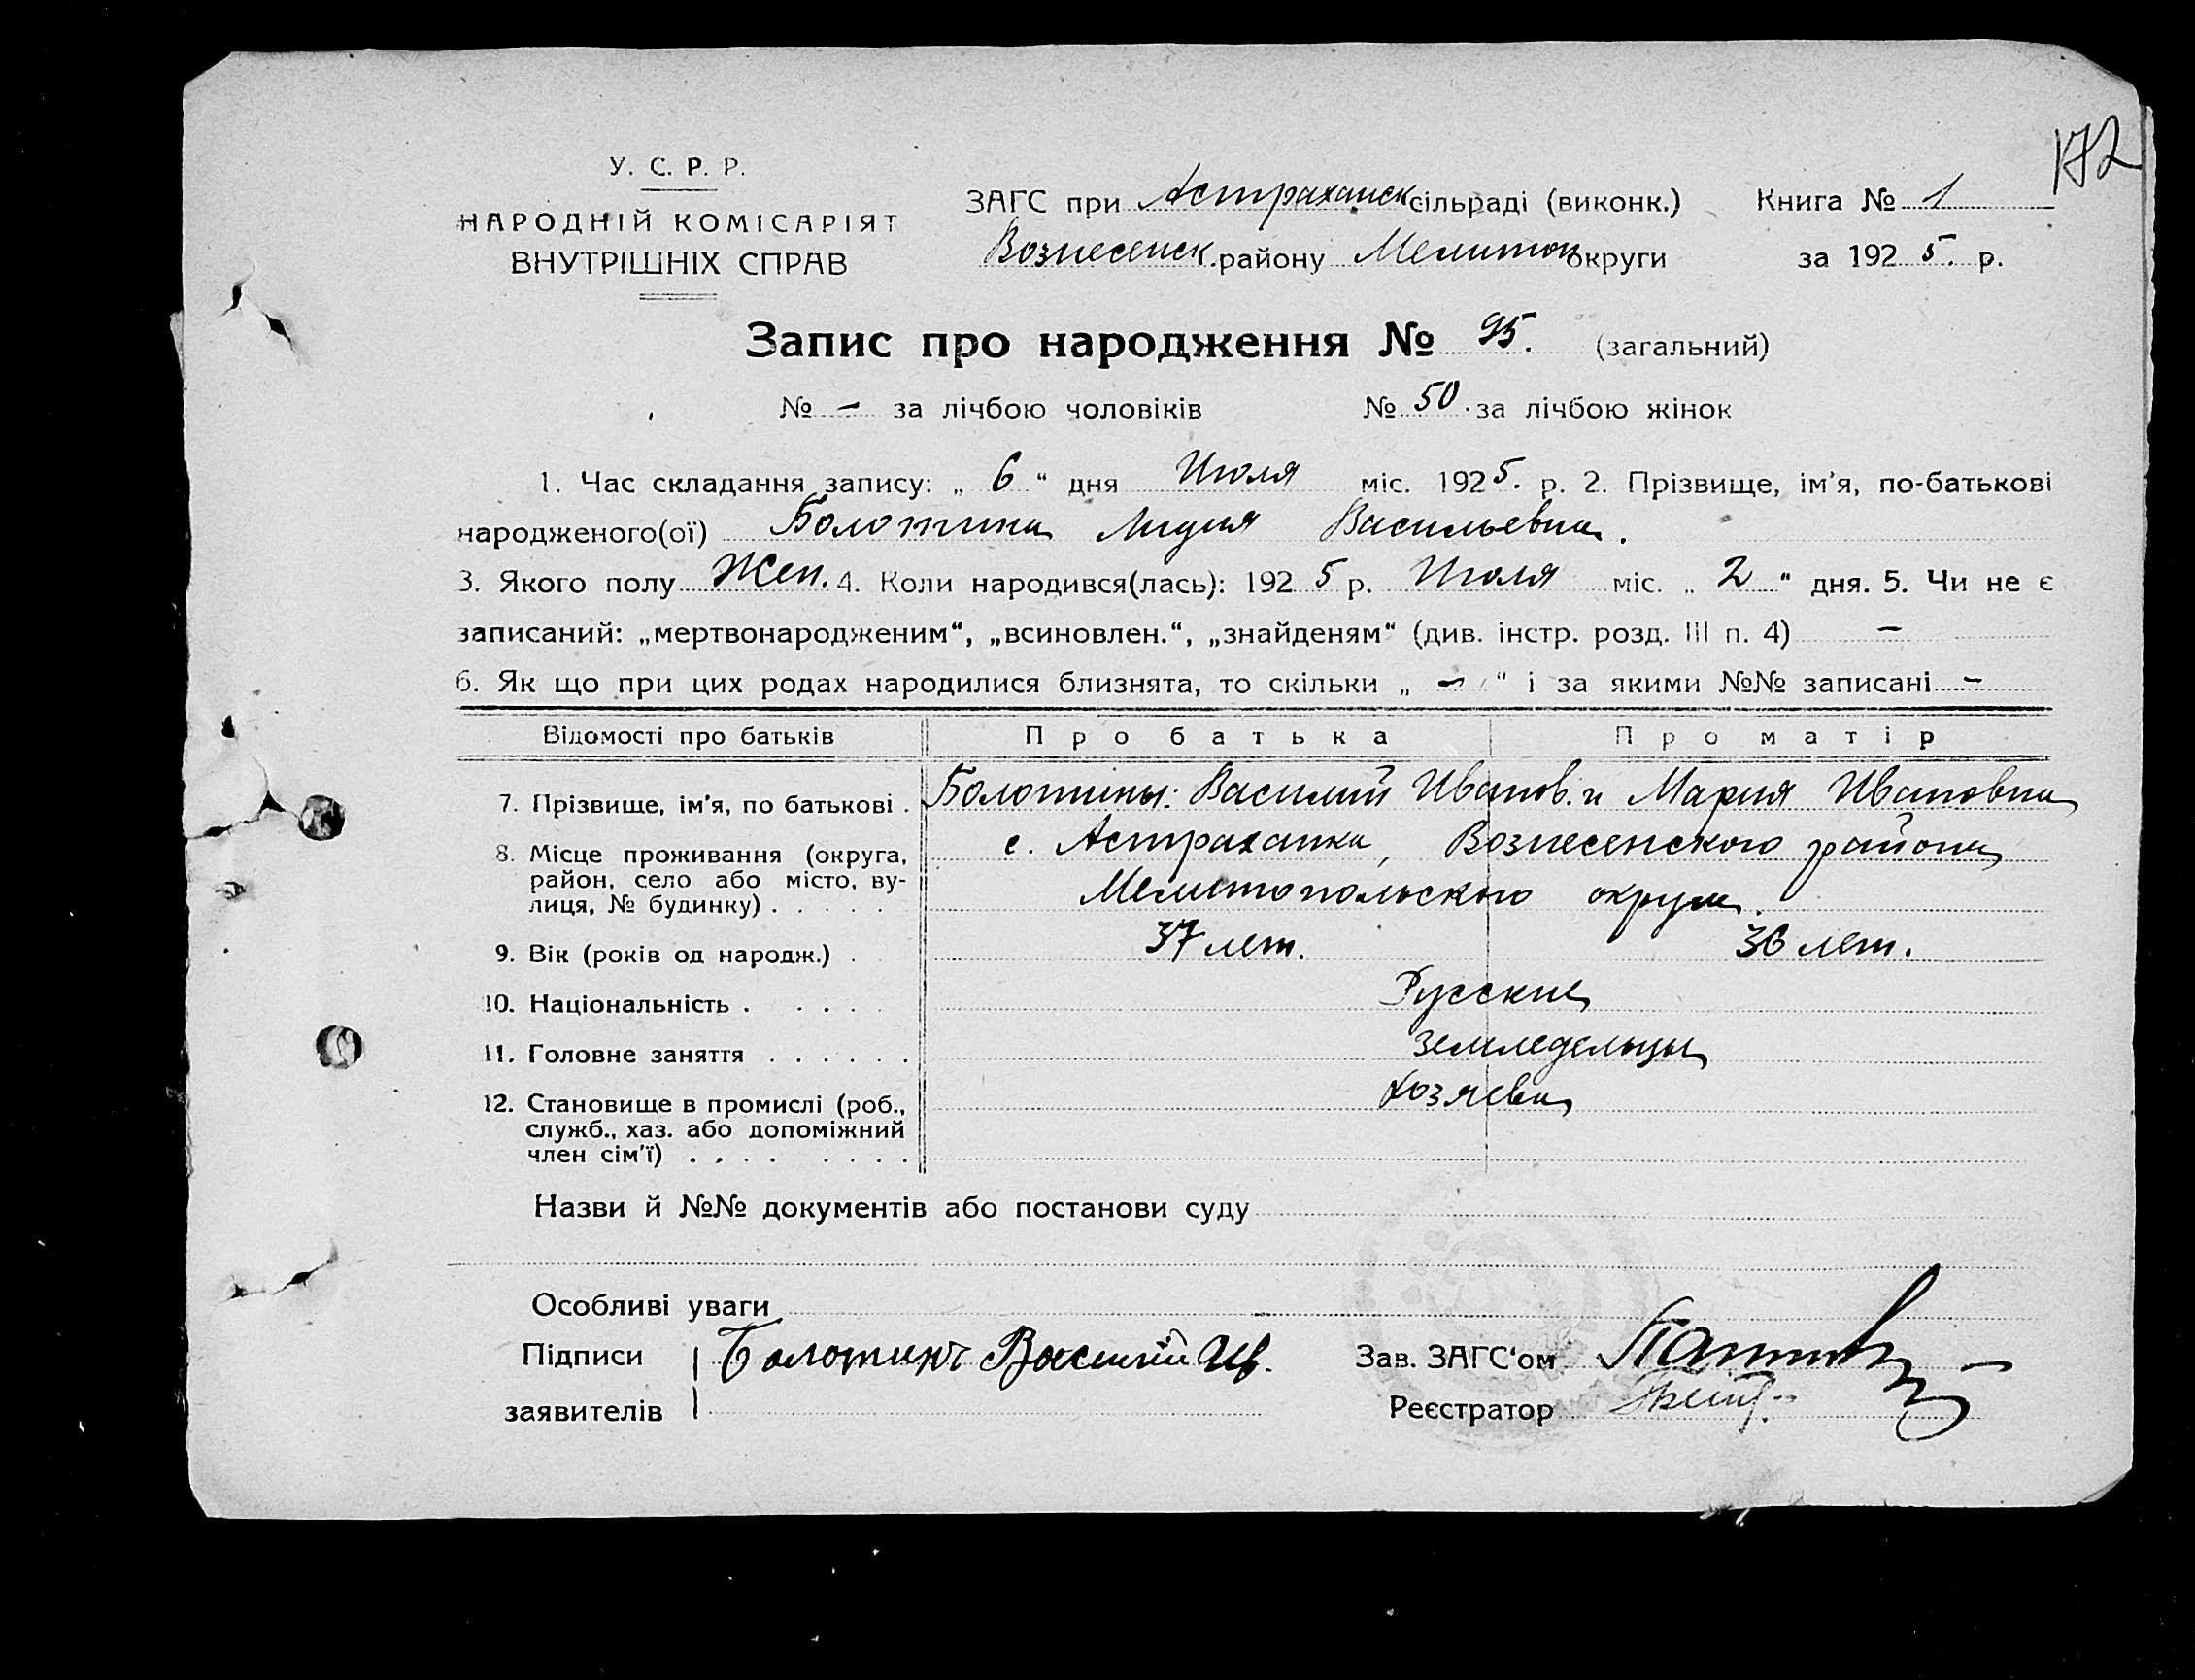 172
У. С. Р. Р.
НАРОДНІЙ КОМІСАРІЯТ
ВНУТРІШНІХ СПРАВ
ЗАГС при Астраханск сільраді (виконк.) Книга № 1
Вознесенск. району Мелитоп округи за 1925. р.
Запис про народження № 95. (загальний)
№ – за лічбою чоловіків № 50. за лічбою жінок
1. Час складання запису: „ 6 “ дня Июля міс. 1925. р. 2. Прізвище, ім'я, по-батькові
народженого(ої) Болотина Лидия Васильевна.
3. Якого полу Жен. 4. Коли народився(лась): 1925 р. Июля міс. „ 2 “ дня. 5. Чи не є
записаний: „мертвонародженим“, „всиновлен.“, „знайденям“ (див. інстр. розд. III п. 4) –
6. Як що при цих родах народилися близнята, то скільки „ – “ і за якими №№ записані –
Відомості про батьків Про батька Про матір
7. Прізвище, ім'я, по батькові . Болотины: Василий Иванов. и Мария Ивановна
8. Місце проживання (округа, с. Астраханка, Вознесенского района
район, село або місто, ву-
лиця, № будинку) . . . . . Мелитопольского округа.
9. Вік (років од народж.) . 37 лет. 36 лет.
10. Національність . . . . . Русские
11. Головне заняття . . . . . . земледельцы
12. Становище в промислі (роб., хозяева
служб., хаз. або допоміжний
член сім'ї) . . . . . . . .
Назви й №№ документів або постанови суду
Особливі уваги
Підписи Болотинъ Василій Ив. Зав. ЗАГС‘ом
заявителів Реєстратор